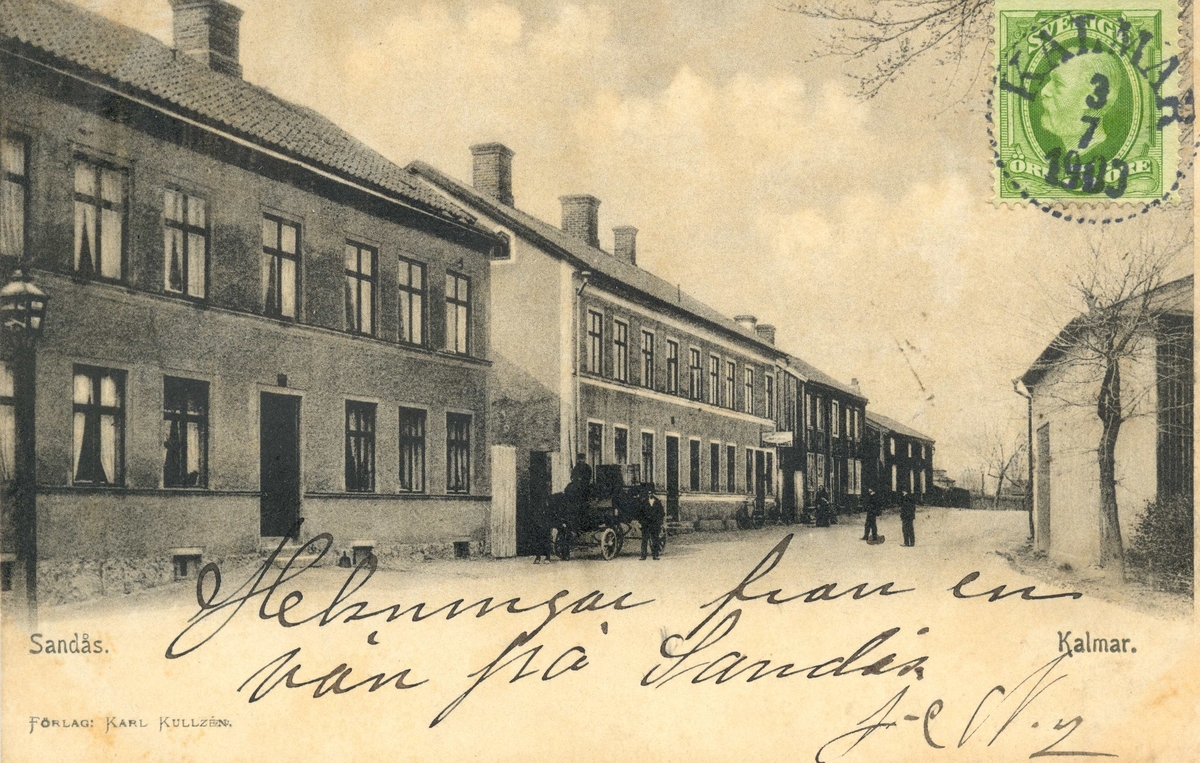 SVERIGE
KALMAR
3
7
1903
ÖRE
ÖRE
Sandås.
Kalmar.
Helsningar från en
vän på Sandås
FÖRLAG: KARL KULLZÉN.